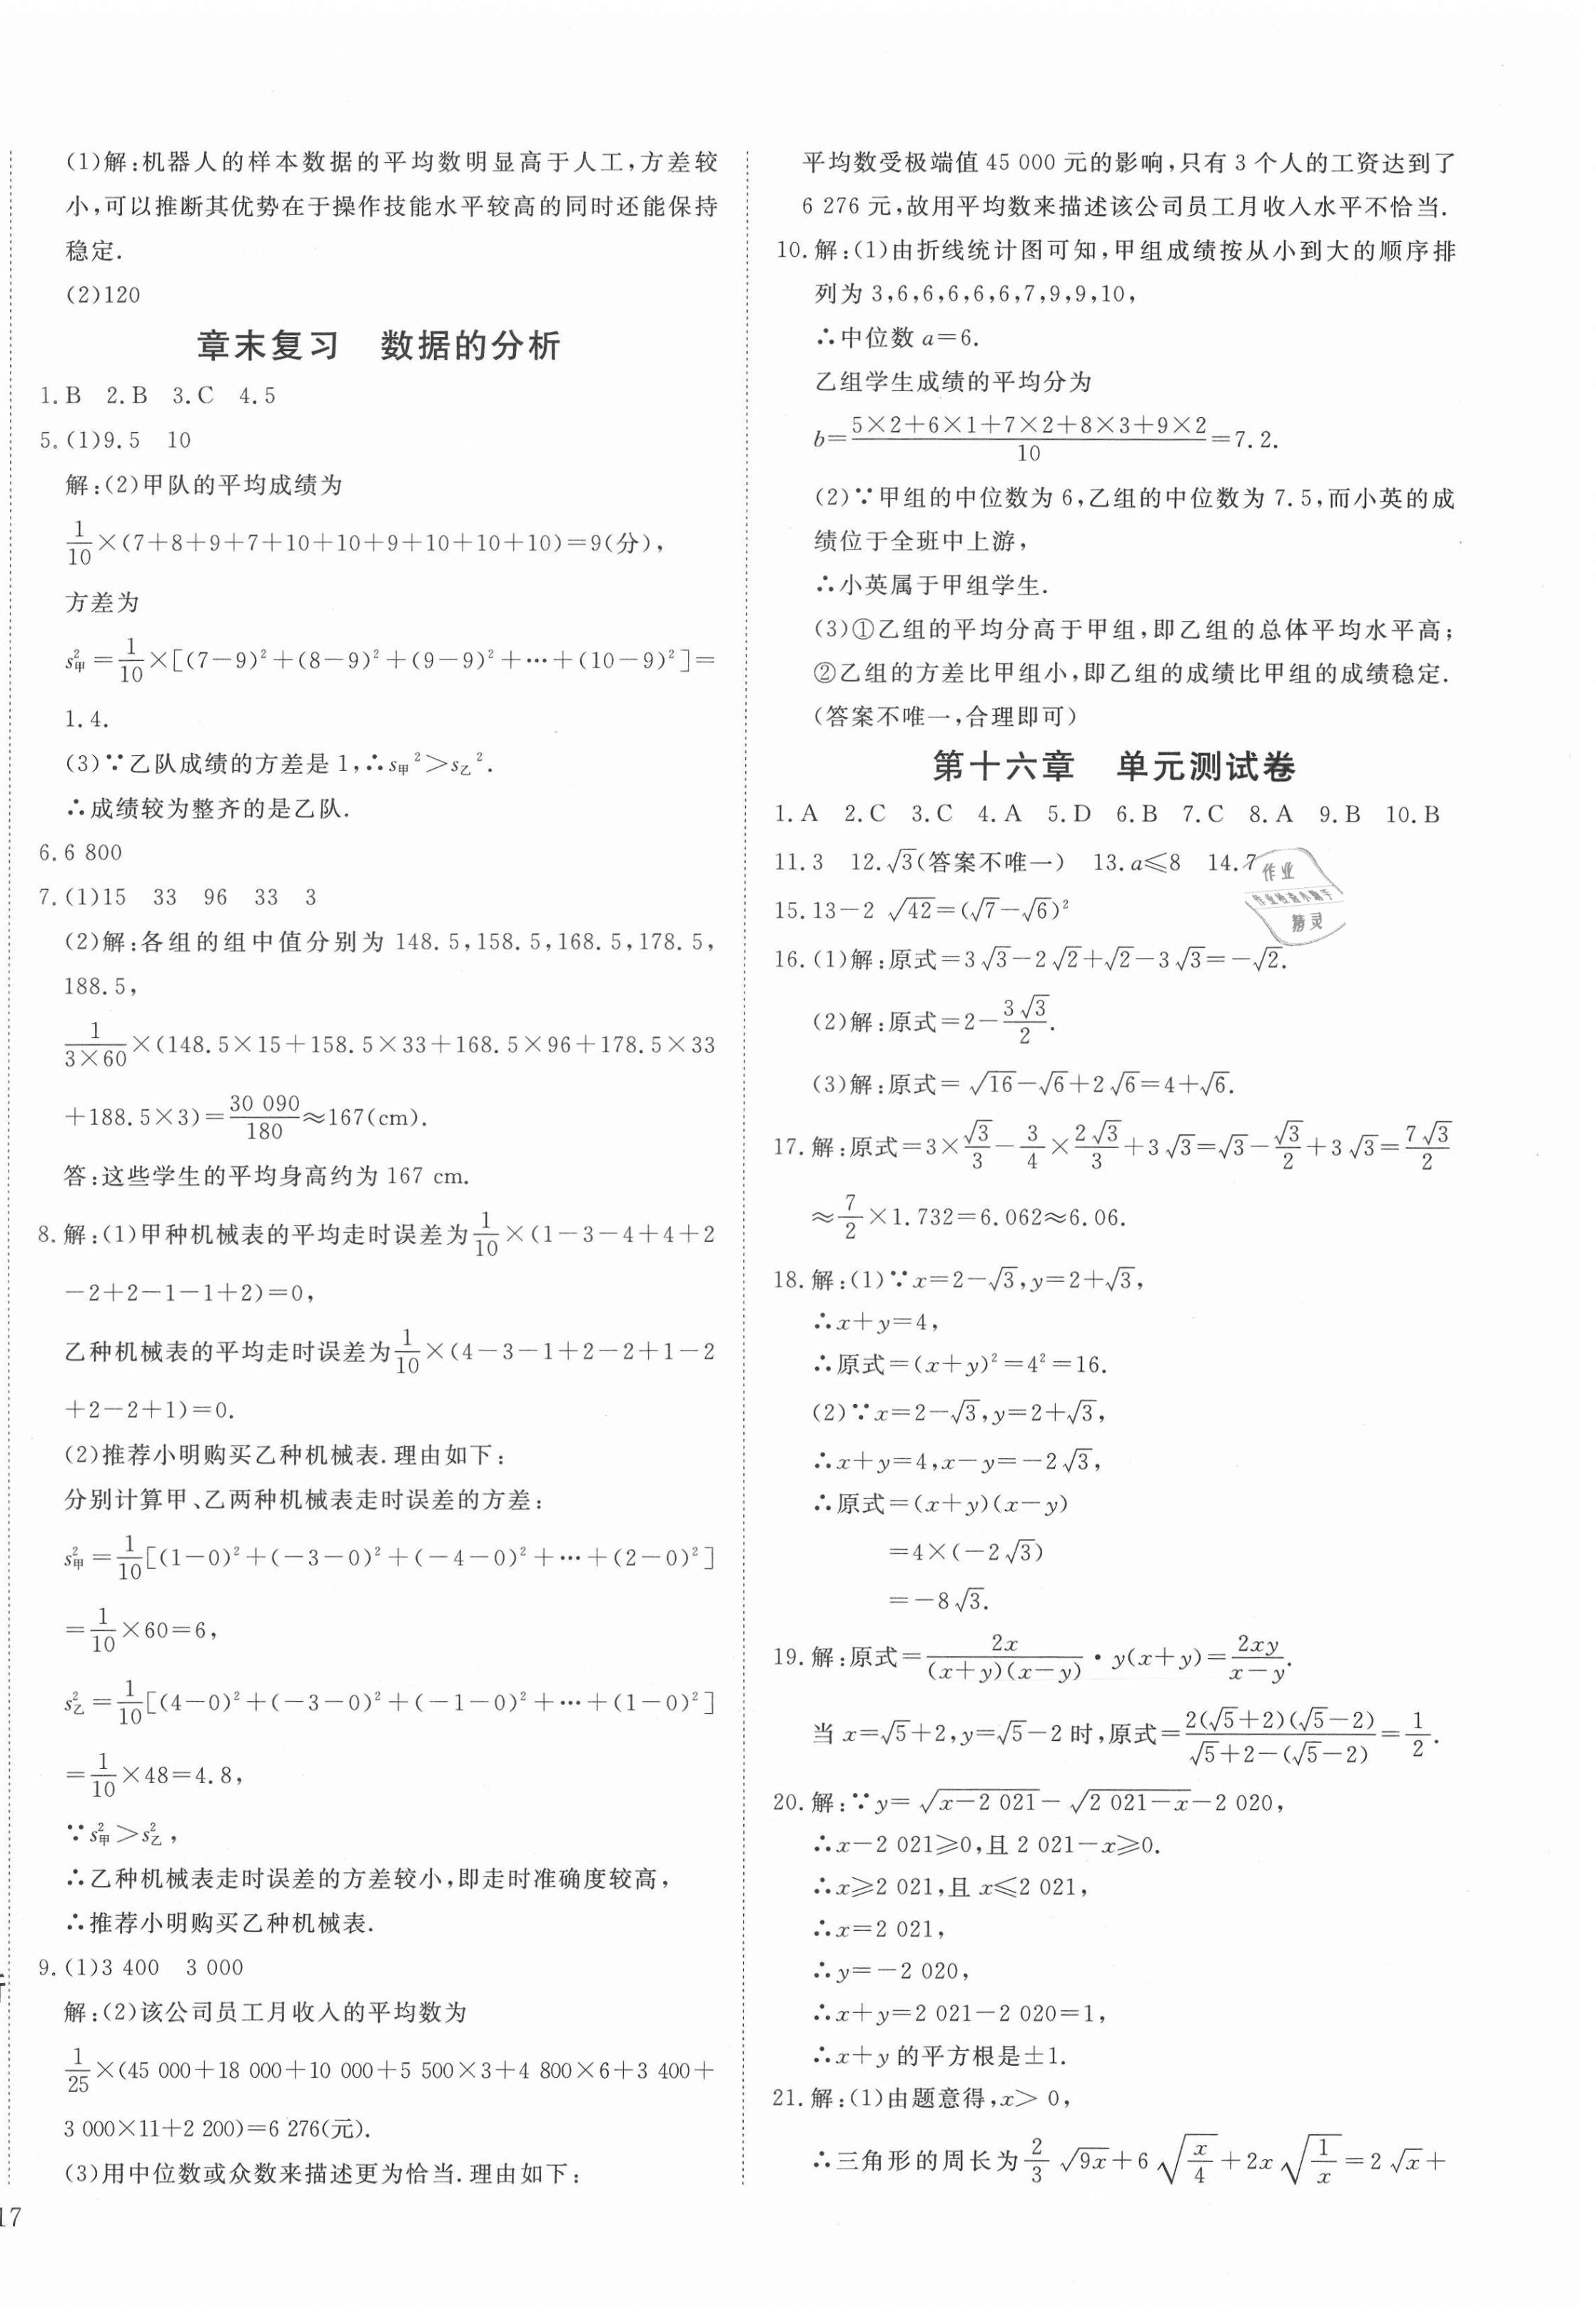 (1)解:机器人的样本数据的平均数明显高于人工,方差较
小,可以推断其优势在于操作技能水平较高的同时还能保持
稳定.
(2)120
章末复习 数据的分析
1.B 2.B 3.C 4.5
5.(1)9.5 10
解:(2)甲队的平均成绩为
1/10×(7+8+9+7+10+10+9+10+10+10)=9(分),
方差为
s²甲=1/10×[(7-9)²+(8-9)²+(9-9)²+…+(10-9)²]=
1.4.
(3)∵乙队成绩的方差是1,∴s甲²>s乙².
∴成绩较为整齐的是乙队.
6.6 800
7.(1)15 33 96 33 3
(2)解:各组的组中值分别为 148.5,158.5,168.5,178.5,
188.5,
1/(3×60)×(148.5×15+158.5×33+168.5×96+178.5×33
+188.5×3)=30 090/180≈167(cm).
答:这些学生的平均身高约为 167 cm.
8.解:(1)甲种机械表的平均走时误差为1/10×(1-3-4+4+2
-2+2-1-1+2)=0,
乙种机械表的平均走时误差为1/10×(4-3-1+2-2+1-2
+2-2+1)=0.
(2)推荐小明购买乙种机械表.理由如下:
分别计算甲、乙两种机械表走时误差的方差:
s²甲=1/10[(1-0)²+(-3-0)²+(-4-0)²+…+(2-0)²]
=1/10×60=6,
s²乙=1/10[(4-0)²+(-3-0)²+(-1-0)²+…+(1-0)²]
=1/10×48=4.8,
∵s²甲>s²乙,
∴乙种机械表走时误差的方差较小,即走时准确度较高,
∴推荐小明购买乙种机械表.
9.(1)3 400 3 000
解:(2)该公司员工月收入的平均数为
1/25×(45 000+18 000+10 000+5 500×3+4 800×6+3 400+
3 000×11+2 200)=6 276(元).
(3)用中位数或众数来描述更为恰当.理由如下:
17
平均数受极端值 45 000 元的影响,只有 3 个人的工资达到了
6 276 元,故用平均数来描述该公司员工月收入水平不恰当.
10.解:(1)由折线统计图可知,甲组成绩按从小到大的顺序排
列为 3,6,6,6,6,6,7,9,9,10,
∴中位数 a=6.
乙组学生成绩的平均分为
b=(5×2+6×1+7×2+8×3+9×2)/10=7.2.
(2)∵甲组的中位数为 6,乙组的中位数为 7.5,而小英的成
绩位于全班中上游,
∴小英属于甲组学生.
(3)①乙组的平均分高于甲组,即乙组的总体平均水平高;
②乙组的方差比甲组小,即乙组的成绩比甲组的成绩稳定.
(答案不唯一,合理即可)
第十六章 单元测试卷
1.A 2.C 3.C 4.A 5.D 6.B 7.C 8.A 9.B 10.B
11.3 12.√3(答案不唯一) 13.a≤8 14.7
作业
精灵
15.13-2√42=(√7-√6)²
16.(1)解:原式=3√3-2√2+√2-3√3=-√2.
(2)解:原式=2-3√3/2.
(3)解:原式=√16-√6+2√6=4+√6.
17.解:原式=3×√3/3-3/4×2√3/3+3√3=√3-√3/2+3√3=7√3/2
≈7/2×1.732=6.062≈6.06.
18.解:(1)∵x=2-√3,y=2+√3,
∴x+y=4,
∴原式=(x+y)²=4²=16.
(2)∵x=2-√3,y=2+√3,
∴x+y=4,x-y=-2√3,
∴原式=(x+y)(x-y)
=4×(-2√3)
=-8√3.
19.解:原式=2x/((x+y)(x-y))·y(x+y)=2xy/(x-y).
当 x=√5+2,y=√5-2 时,原式=2(√5+2)(√5-2)/(√5+2-(√5-2))=1/2.
20.解:∵y=√(x-2 021)-√(2 021-x)-2 020,
∴x-2 021≥0,且 2 021-x≥0.
∴x≥2 021,且 x≤2 021,
∴x=2 021,
∴y=-2 020,
∴x+y=2 021-2 020=1,
∴x+y 的平方根是±1.
21.解:(1)由题意得,x>0,
∴三角形的周长为2/3√(9x)+6√(x/4)+2x√(1/x)=2√x+